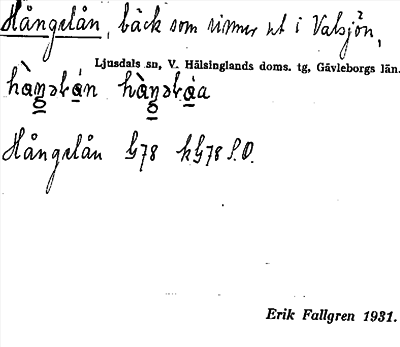 Hångelån, bäck som rinner ut i Valsjön,
Ljusdals sn, V. Hälsinglands doms. tg, Gävleborgs län.
Hångelån G78 kG78 S.O.
Erik Fallgren 1931.